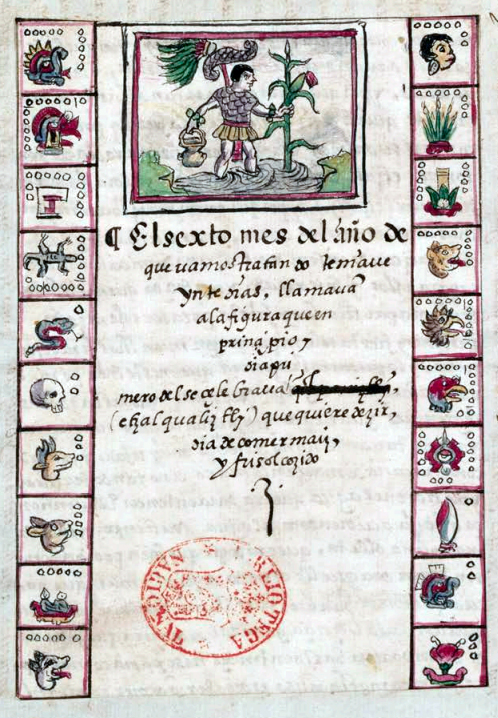 ¶ El sexto mes del año de
que vamos tratando tenia ve
ynte dias, llamavā
a la figura que en
principio,
dia pri
mero del se celebrava
que quiere dezir,
dia de comer maiz,
y frisol cozido
BIBLIOTECA NACIONAL